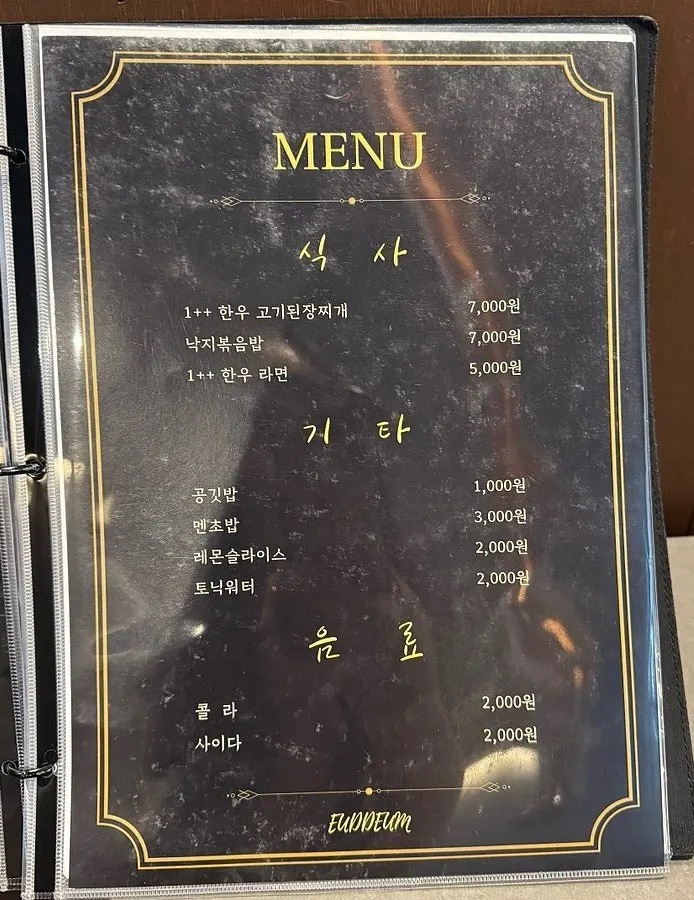 MENU
식 사
1++ 한우 고기된장찌개 7,000원
낙지볶음밥 7,000원
1++ 한우 라면 5,000원
기 타
공깃밥 1,000원
멘초밥 3,000원
레몬슬라이스 2,000원
토닉워터 2,000원
음 료
콜 라 2,000원
사이다 2,000원
EUDDEUM